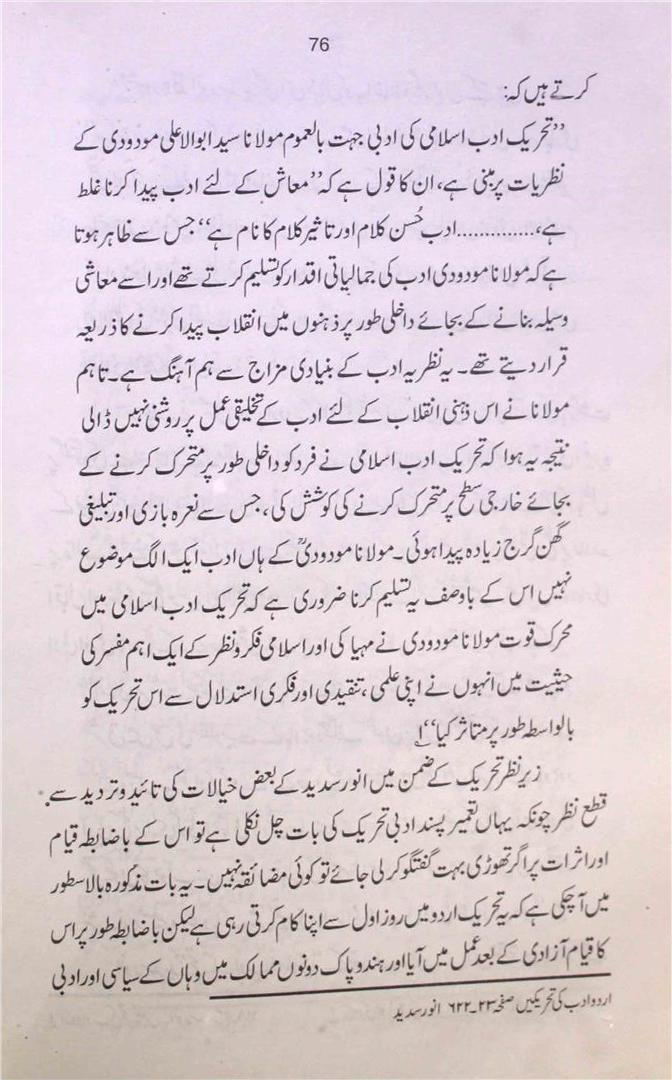 76
کرتے ہیں کہ:
”تحریک ادب اسلامی کی ادبی جہت بالعموم مولانا سید ابوالاعلی مودودی کے
نظریات پر مبنی ہے، ان کا قول ہے کہ ”معاش کے لئے ادب پیدا کرنا غلط
ہے،.............ادب حُسن کلام اور تاثیر کلام کا نام ہے“ جس سے ظاہر ہوتا
ہے کہ مولانا مودودی ادب کی جمالیاتی اقدار کو تسلیم کرتے تھے اور اسے معاشی
وسیلہ بنانے کے بجائے داخلی طور پر ذہنوں میں انقلاب پیدا کرنے کا ذریعہ
قرار دیتے تھے۔ یہ نظریہ ادب کے بنیادی مزاج سے ہم آہنگ ہے۔ تاہم
مولانا نے اس ذہنی انقلاب کے لئے ادب کے تخلیقی عمل پر روشنی نہیں ڈالی
نتیجہ یہ ہوا کہ تحریک ادب اسلامی نے فرد کو داخلی طور پر متحرک کرنے کے
بجائے خارجی سطح پر متحرک کرنے کی کوشش کی، جس سے نعرہ بازی اور تبلیغی
گھن گرج زیادہ پیدا ہوئی۔ مولانا مودودیؒ کے ہاں ادب ایک الگ موضوع
نہیں اس کے باوصف یہ تسلیم کرنا ضروری ہے کہ تحریک ادب اسلامی میں
محرک قوت مولانا مودودی نے مہیا کی اور اسلامی فکر و نظر کے ایک اہم مفسر کی
حیثیت میں انہوں نے اپنی علمی، تنقیدی اور فکری استدلال سے اس تحریک کو
بالواسطہ طور پر متاثر کیا“ ۱
زیر نظر تحریک کے ضمن میں انور سدید کے بعض خیالات کی تائید و تردید سے
قطع نظر چونکہ یہاں تعمیر پسند ادبی تحریک کی بات چل نکلی ہے تو اس کے باضابطہ قیام
اور اثرات پر اگر تھوڑی بہت گفتگو کر لی جائے تو کوئی مضائقہ نہیں۔ یہ بات مذکورہ بالا سطور
میں آچکی ہے کہ یہ تحریک اردو میں روز اول سے اپنا کام کرتی رہی ہے لیکن باضابطہ طور پر اس
کا قیام آزادی کے بعد عمل میں آیا اور ہند و پاک دونوں ممالک میں وہاں کے سیاسی اور ادبی
اردو ادب کی تحریکیں صفحہ ۲۳۔۶۲۲ انور سدید